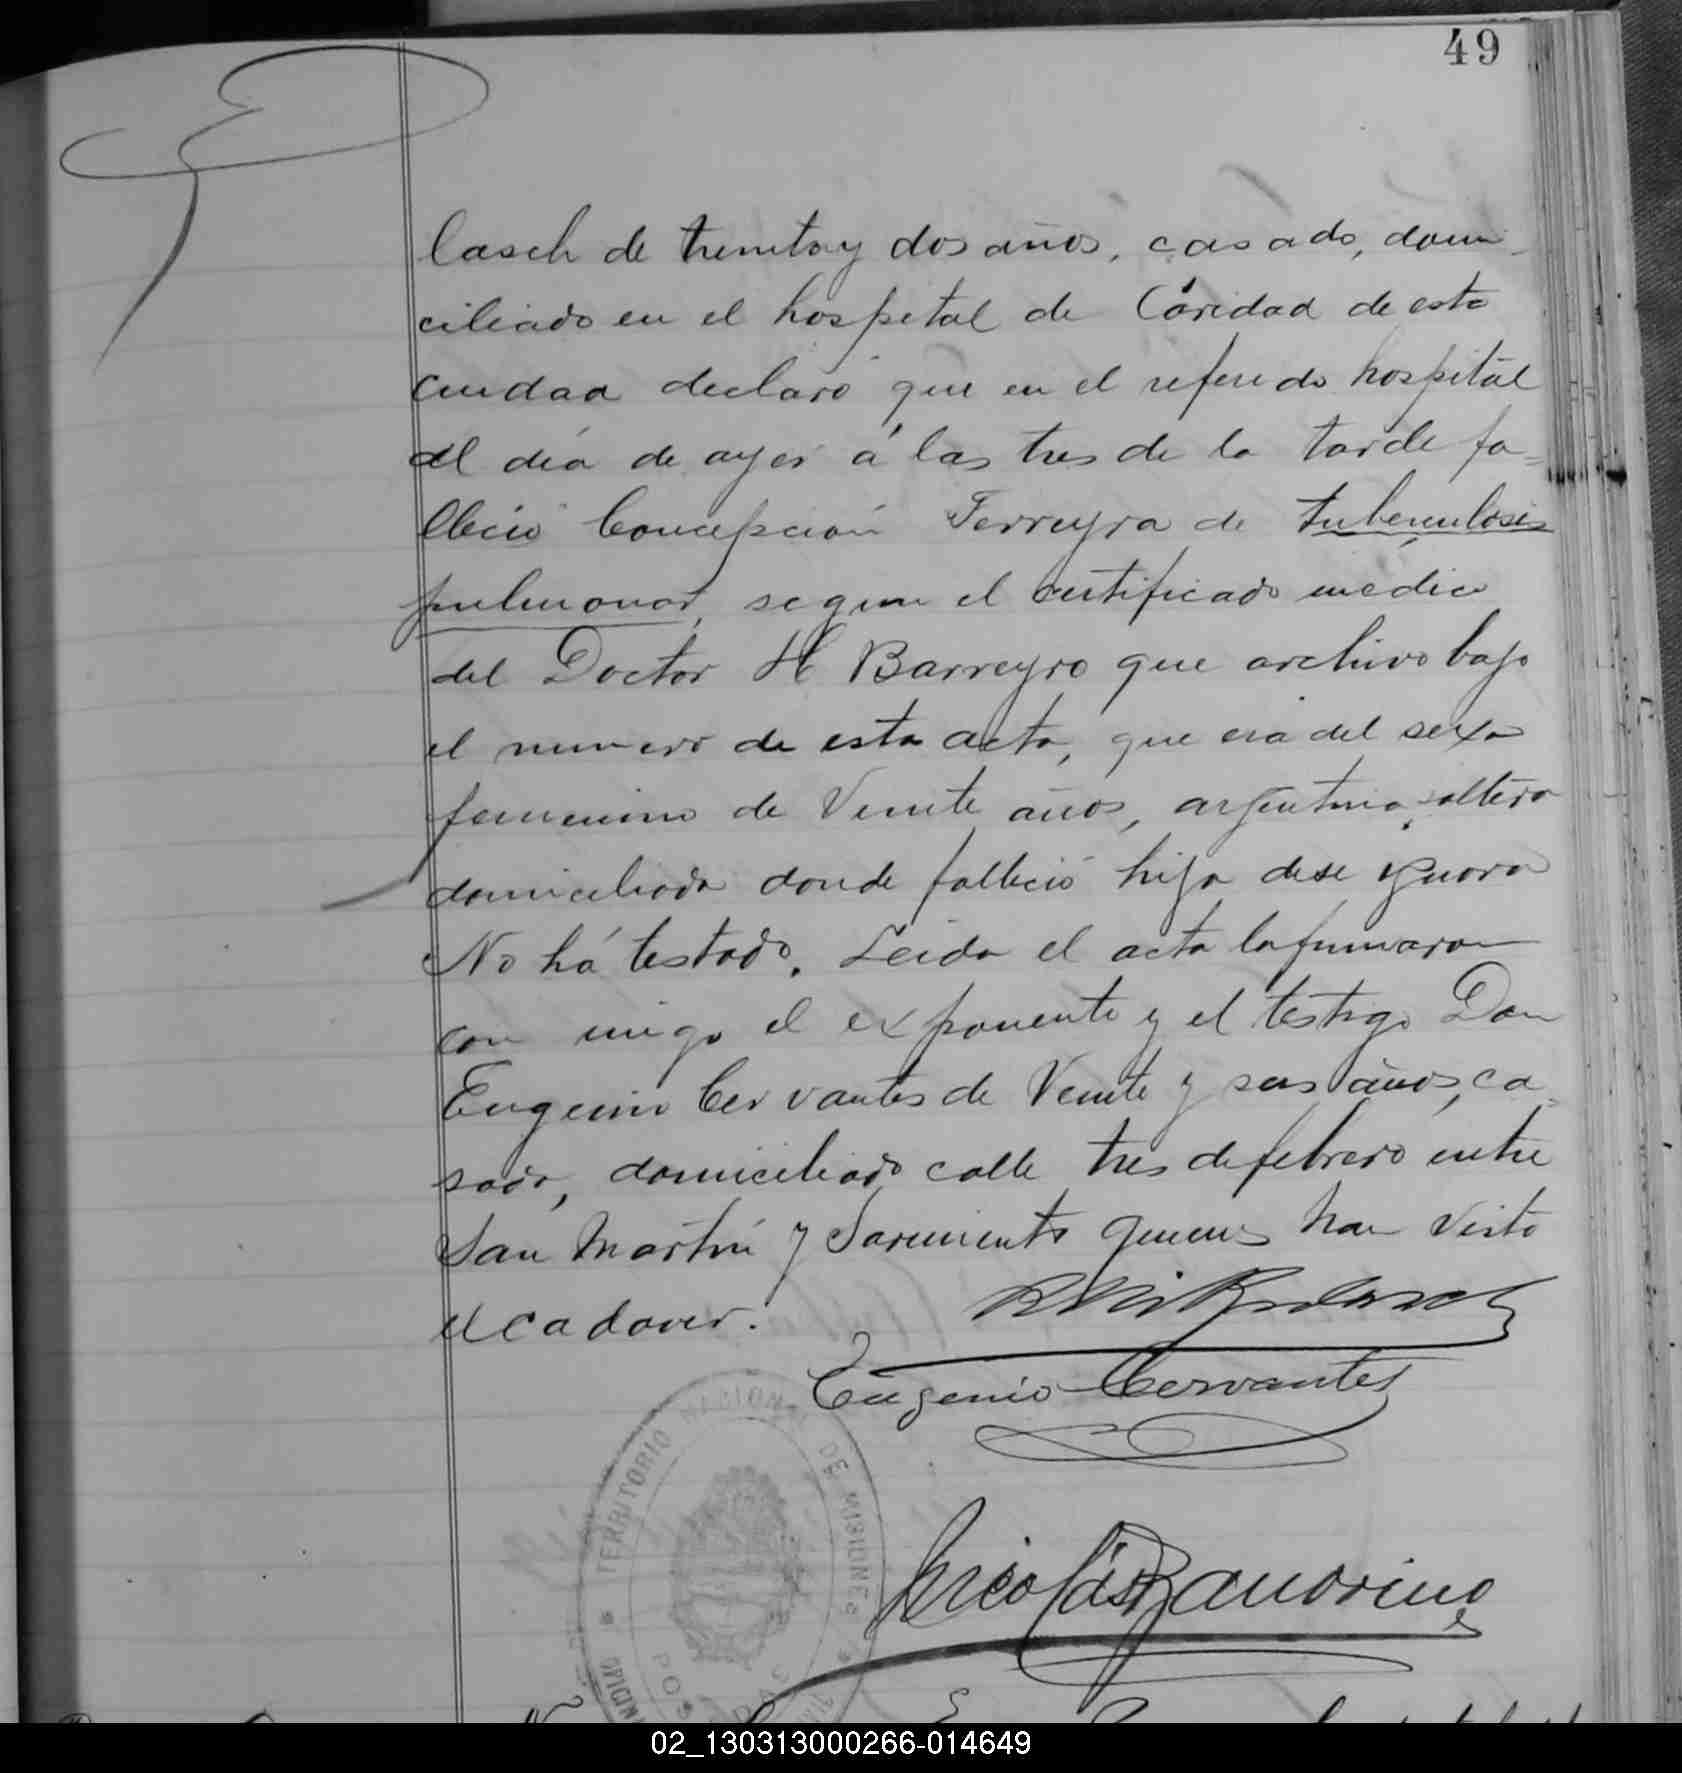 49
lasch de treinta y dos años, casado, domi-
ciliado en el hospital de Caridad de esta
ciudad declaró que en el referido hospital
el dia de ayer á las tres de la tarde fa-
lleció Concepción Ferreyra de tuberculosis
pulmonar, segun el certificado medico
del Doctor H Barreyro que archivo bajo
el numero de esta acta, que era del sexo
femenino de Veinte años, argentina, soltera
domiciliada donde falleció hija de se ignora
No há testado. Leida el acta la firmaron
con migo el exponente y el testigo Don
Eugenio Cervantes de Veinte y seis años, ca-
sado, domiciliado calle tres de febrero entre
San Martín y Sarmiento quienes han visto
el cadaver.
Eugenio Cervantes
TERRITORIO NACIONAL DE MISIONES
POSADAS
Nicolás
02_130313000266-014649